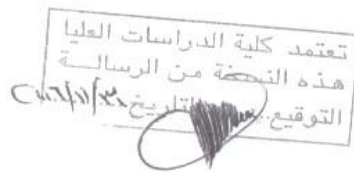 تعتمد كلية الدراسات العليا
هذه النسخة من الرسالــة
التوقيع.....التاريخ